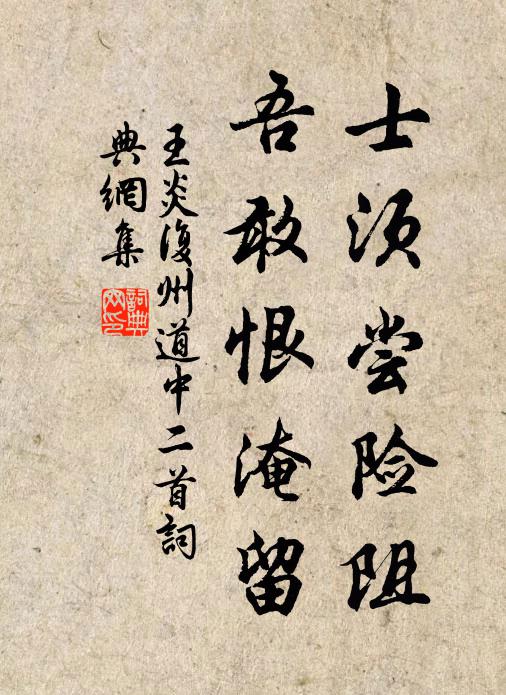 士须尝险阻
吾敢恨淹留
王炎復州道中二首詞
典網集
詞典
网印